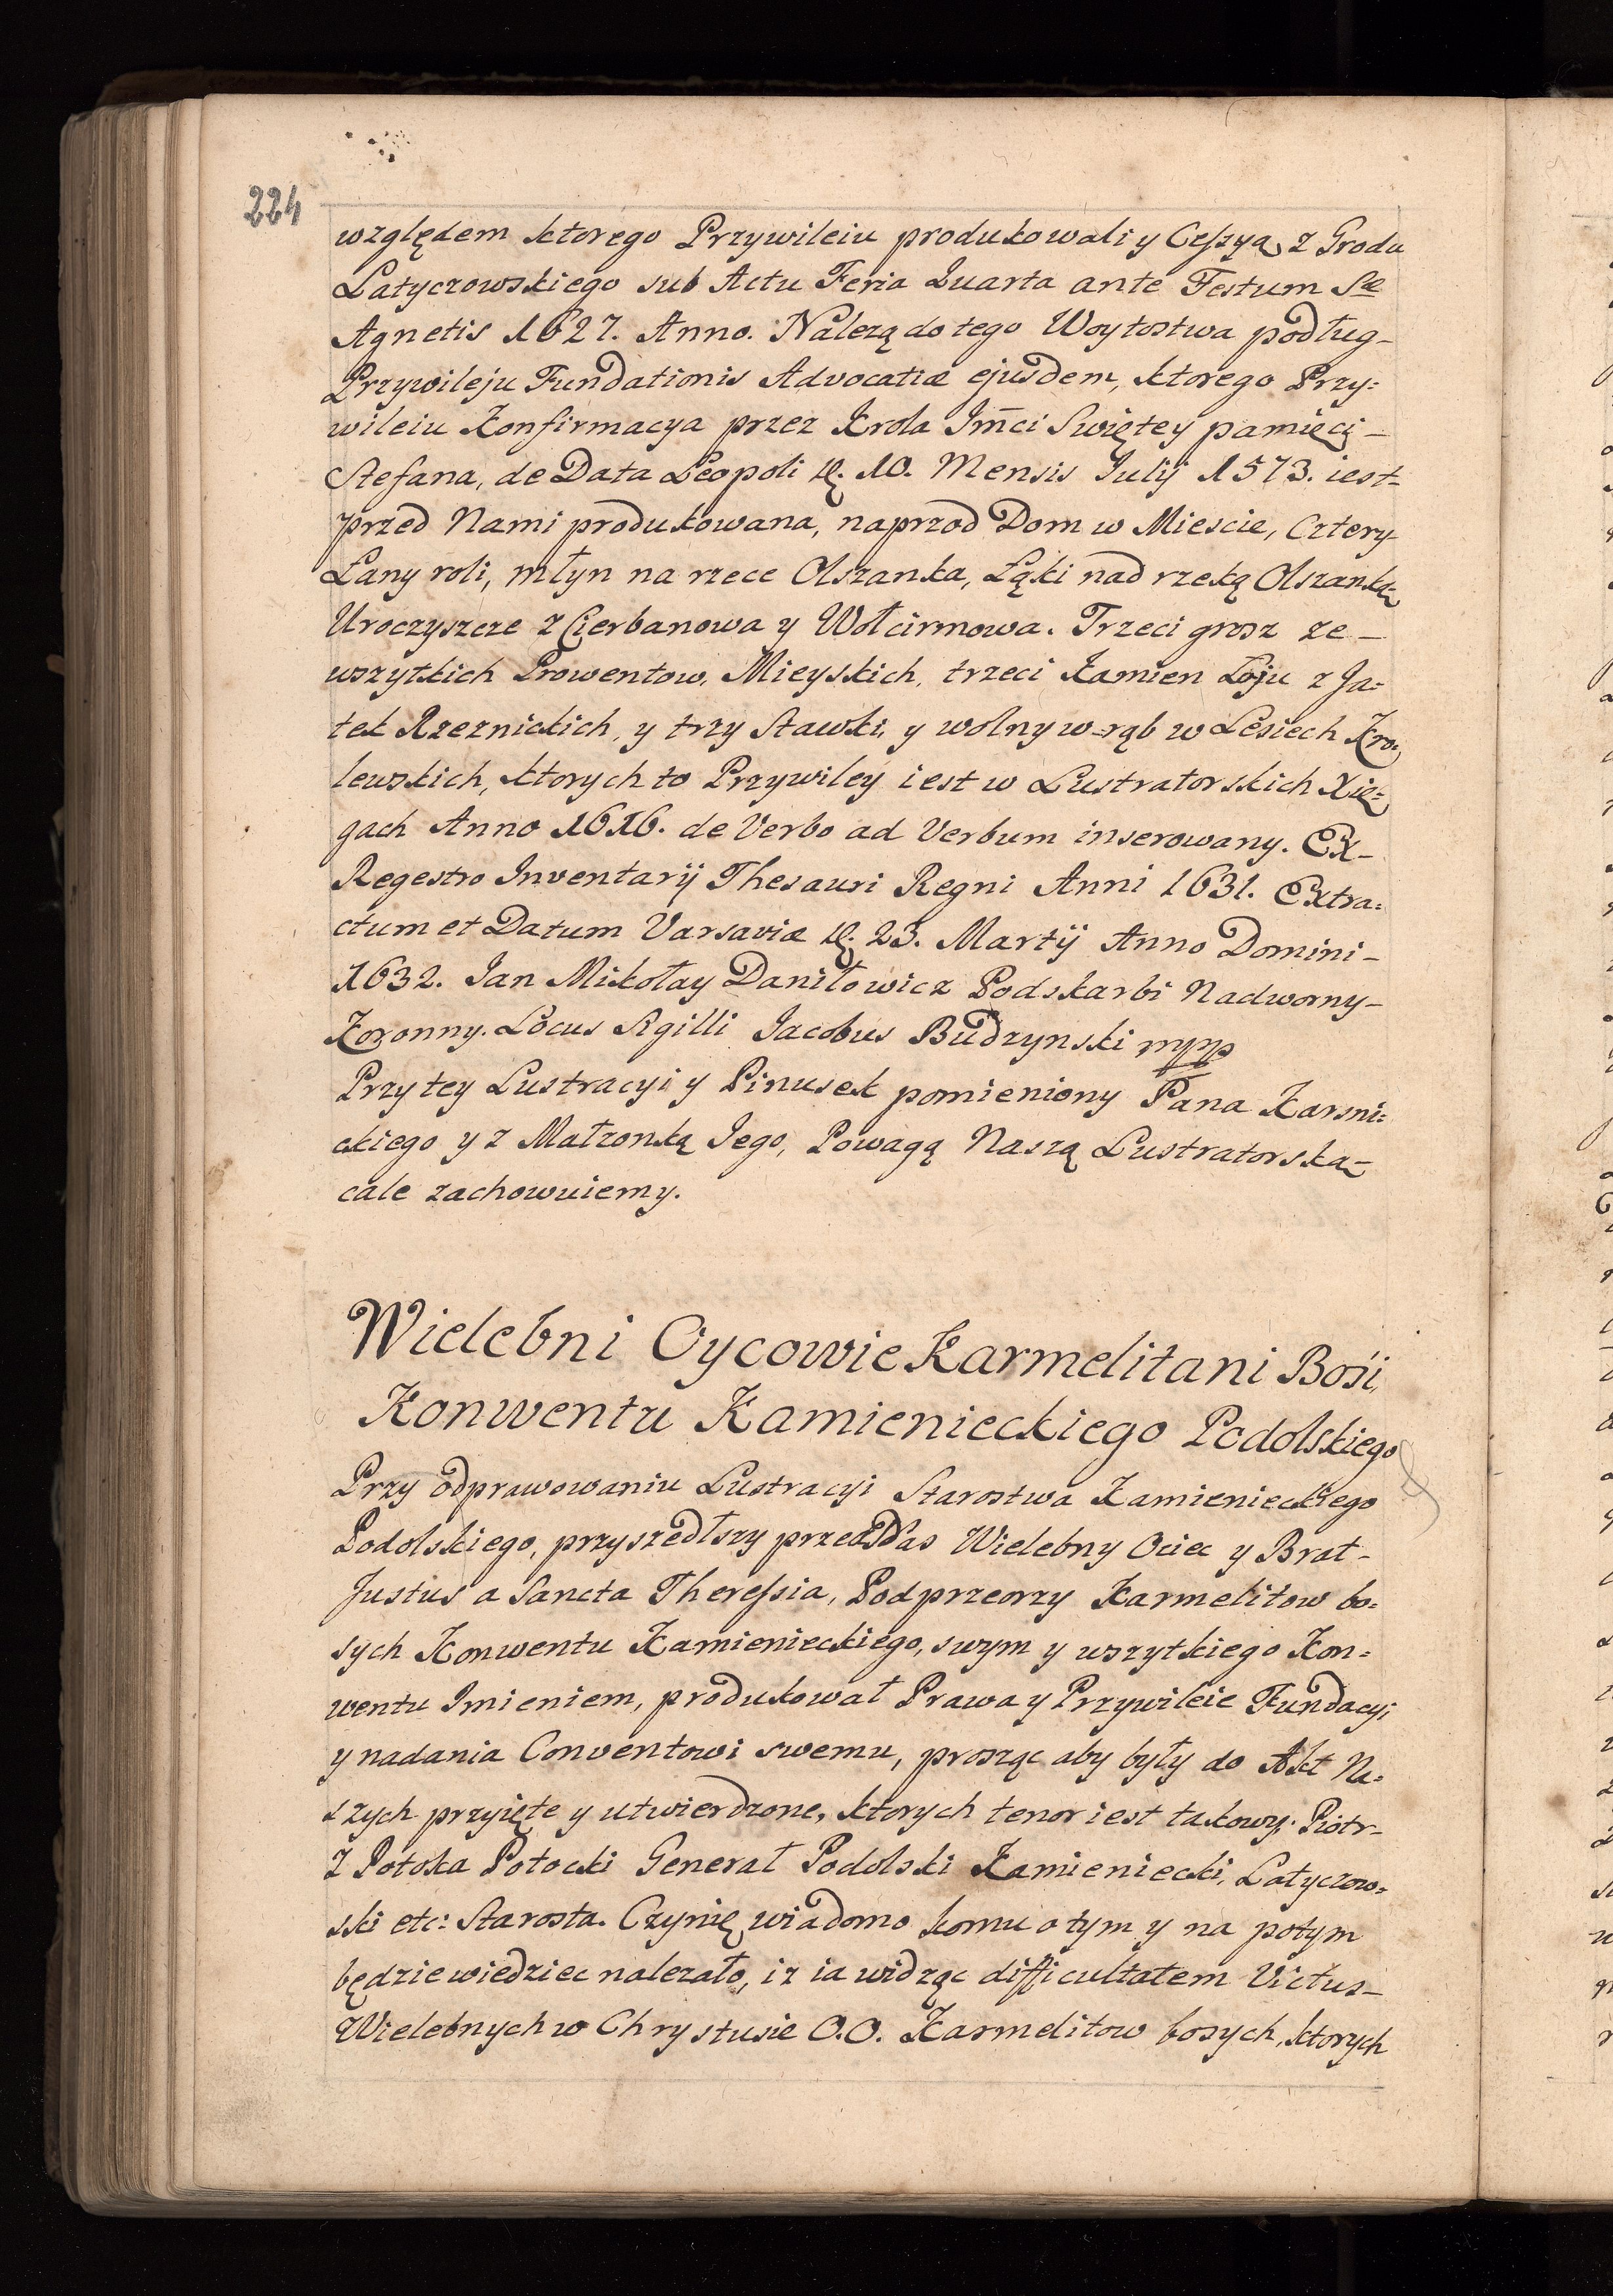 224
względem ktorego Przywileiu produkowali y Cessyą z Grodu
Latyczowskiego sub Actu Feria Quarta ante Festum Stæ
Agnetis 1627. Anno. Nalezą do tego Woytostwa podług
Przywileju Fundationis Advocatiæ ejusdem, ktorego Przy:
wileiu Konfirmacya przez Krola Jm̄ci Swiętey pamięci
Stefana, de Data Leopoli d. 10. Mensis Julij 1573. iest
przed Nami produkowana, naprzod Dom w Miescie, Cztery
Łany roli, młyn na rzece Olszanka, Łąki nad rzeką Olszanką
Uroczyszcze z Cierbanowa y Wołcirmowa. Trzeci grosz ze
wszytkich Prowentow, Mieyskich, trzeci Kamien Łoju z Ja:
tek Rzeznickich, y trzy Stawki, y wolny w-rąb w Lesiech Kro:
lewskich, ktorych to Przywiley iest w Lustratorskich Xię:
gach Anno 1616. de Verbo ad Verbum inserowany. Ex
Regestro Inventarij Thesauri Regni Anni 1631. Extra:
ctum et Datum Varsaviæ d. 23. Martij Anno Domini
1632. Jan Mikołay Daniłowicz Podskarbi Nadworny
Koronny. Locus Sgilli Jacobus Budzynski mpp
Przy tey Lustracyi y Pinusek pomieniony Pana Karsni:
ckiego y z Małzonką Jego, Powagą Naszą Lustratorską
cale zachowuiemy.
Wielebni Oycowie Karmelitani Bosi,
Konwentu Kamienieckiego Podolskiego
Przy odprawowaniu Lustracyi Starostwa Kamienieckiego
Podolskiego, przyszedłszy przed Nas Wielebny Ociec y Brat
Justus a Sancta Theressia, Podprzeorzy Karmelitow bo:
sych Konwentu Kamienieckiego, swym y wszytkiego Kon:
wentu Imieniem, produkował Prawa y Przywileie Fundacyi
y nadania Conventowi swemu, prosząc aby były do Akt Na:
szych przyięte y utwierdzone, ktorych tenor iest takowy: Piotr
Z Potoka Potocki Generał Podolski Kamieniecki, Latyczow:
ski etc: Starosta. Czynię wiadomo komu o tym y na potym
będzie wiedziec nalezało, iz ia widząc difficultatem Victus
Wielebnych w Chrystusie O.O. Karmelitow bosych, ktorych